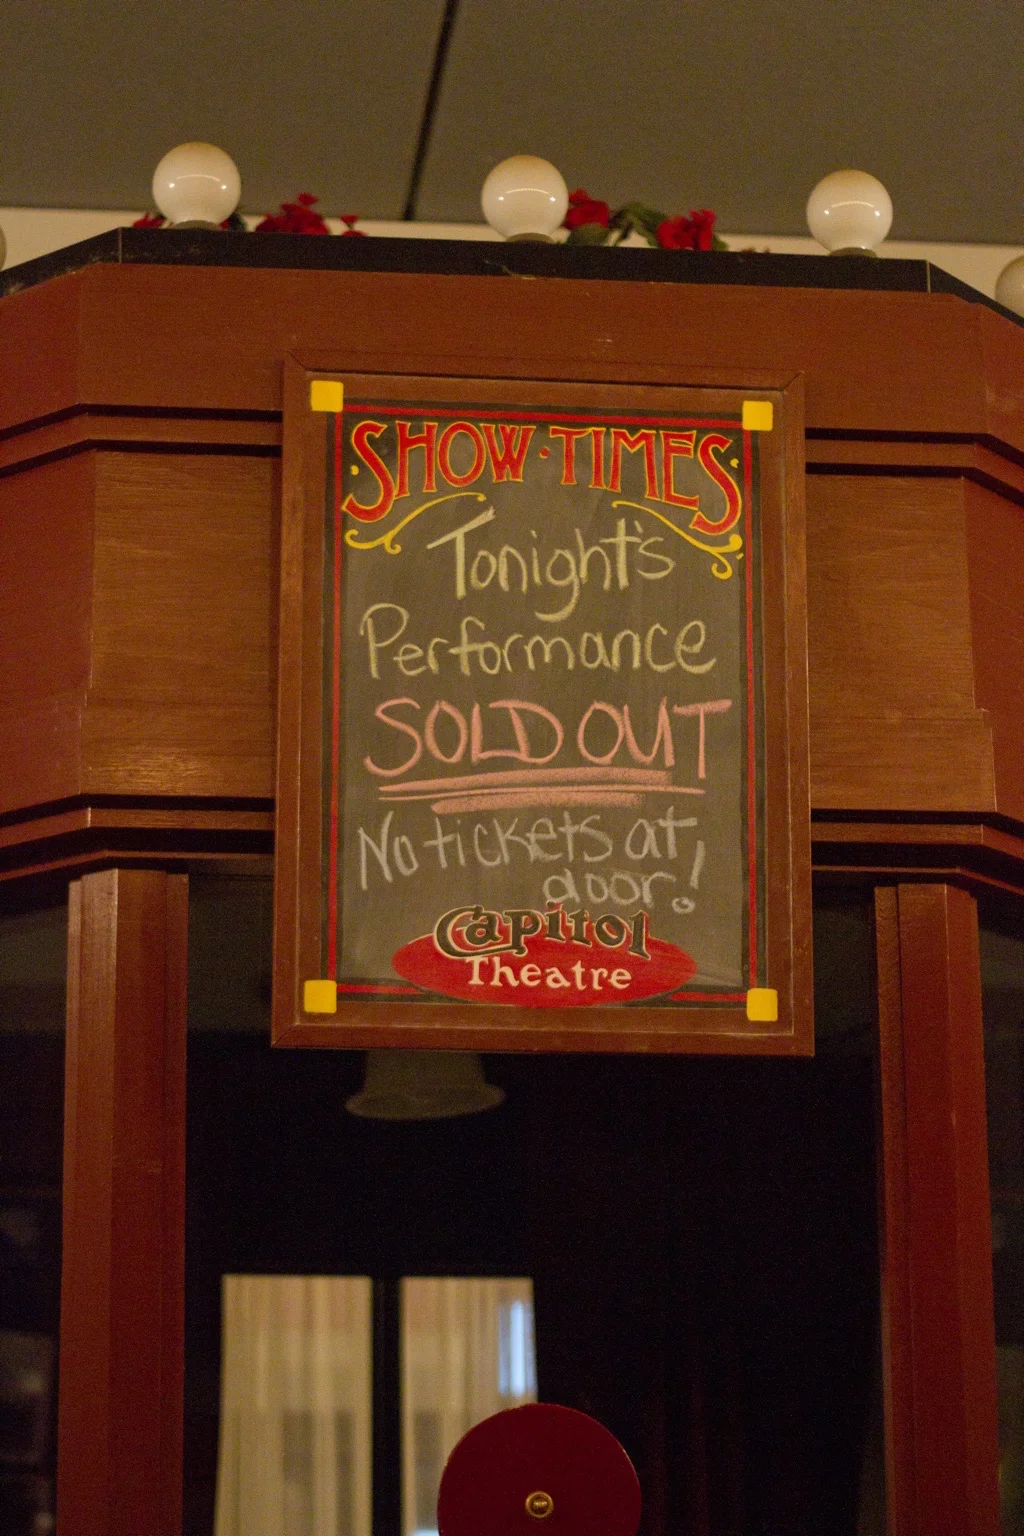 SHOW·TIMES
Tonight's
Performance
SOLD OUT
No tickets at
door!
Capitol
Theatre